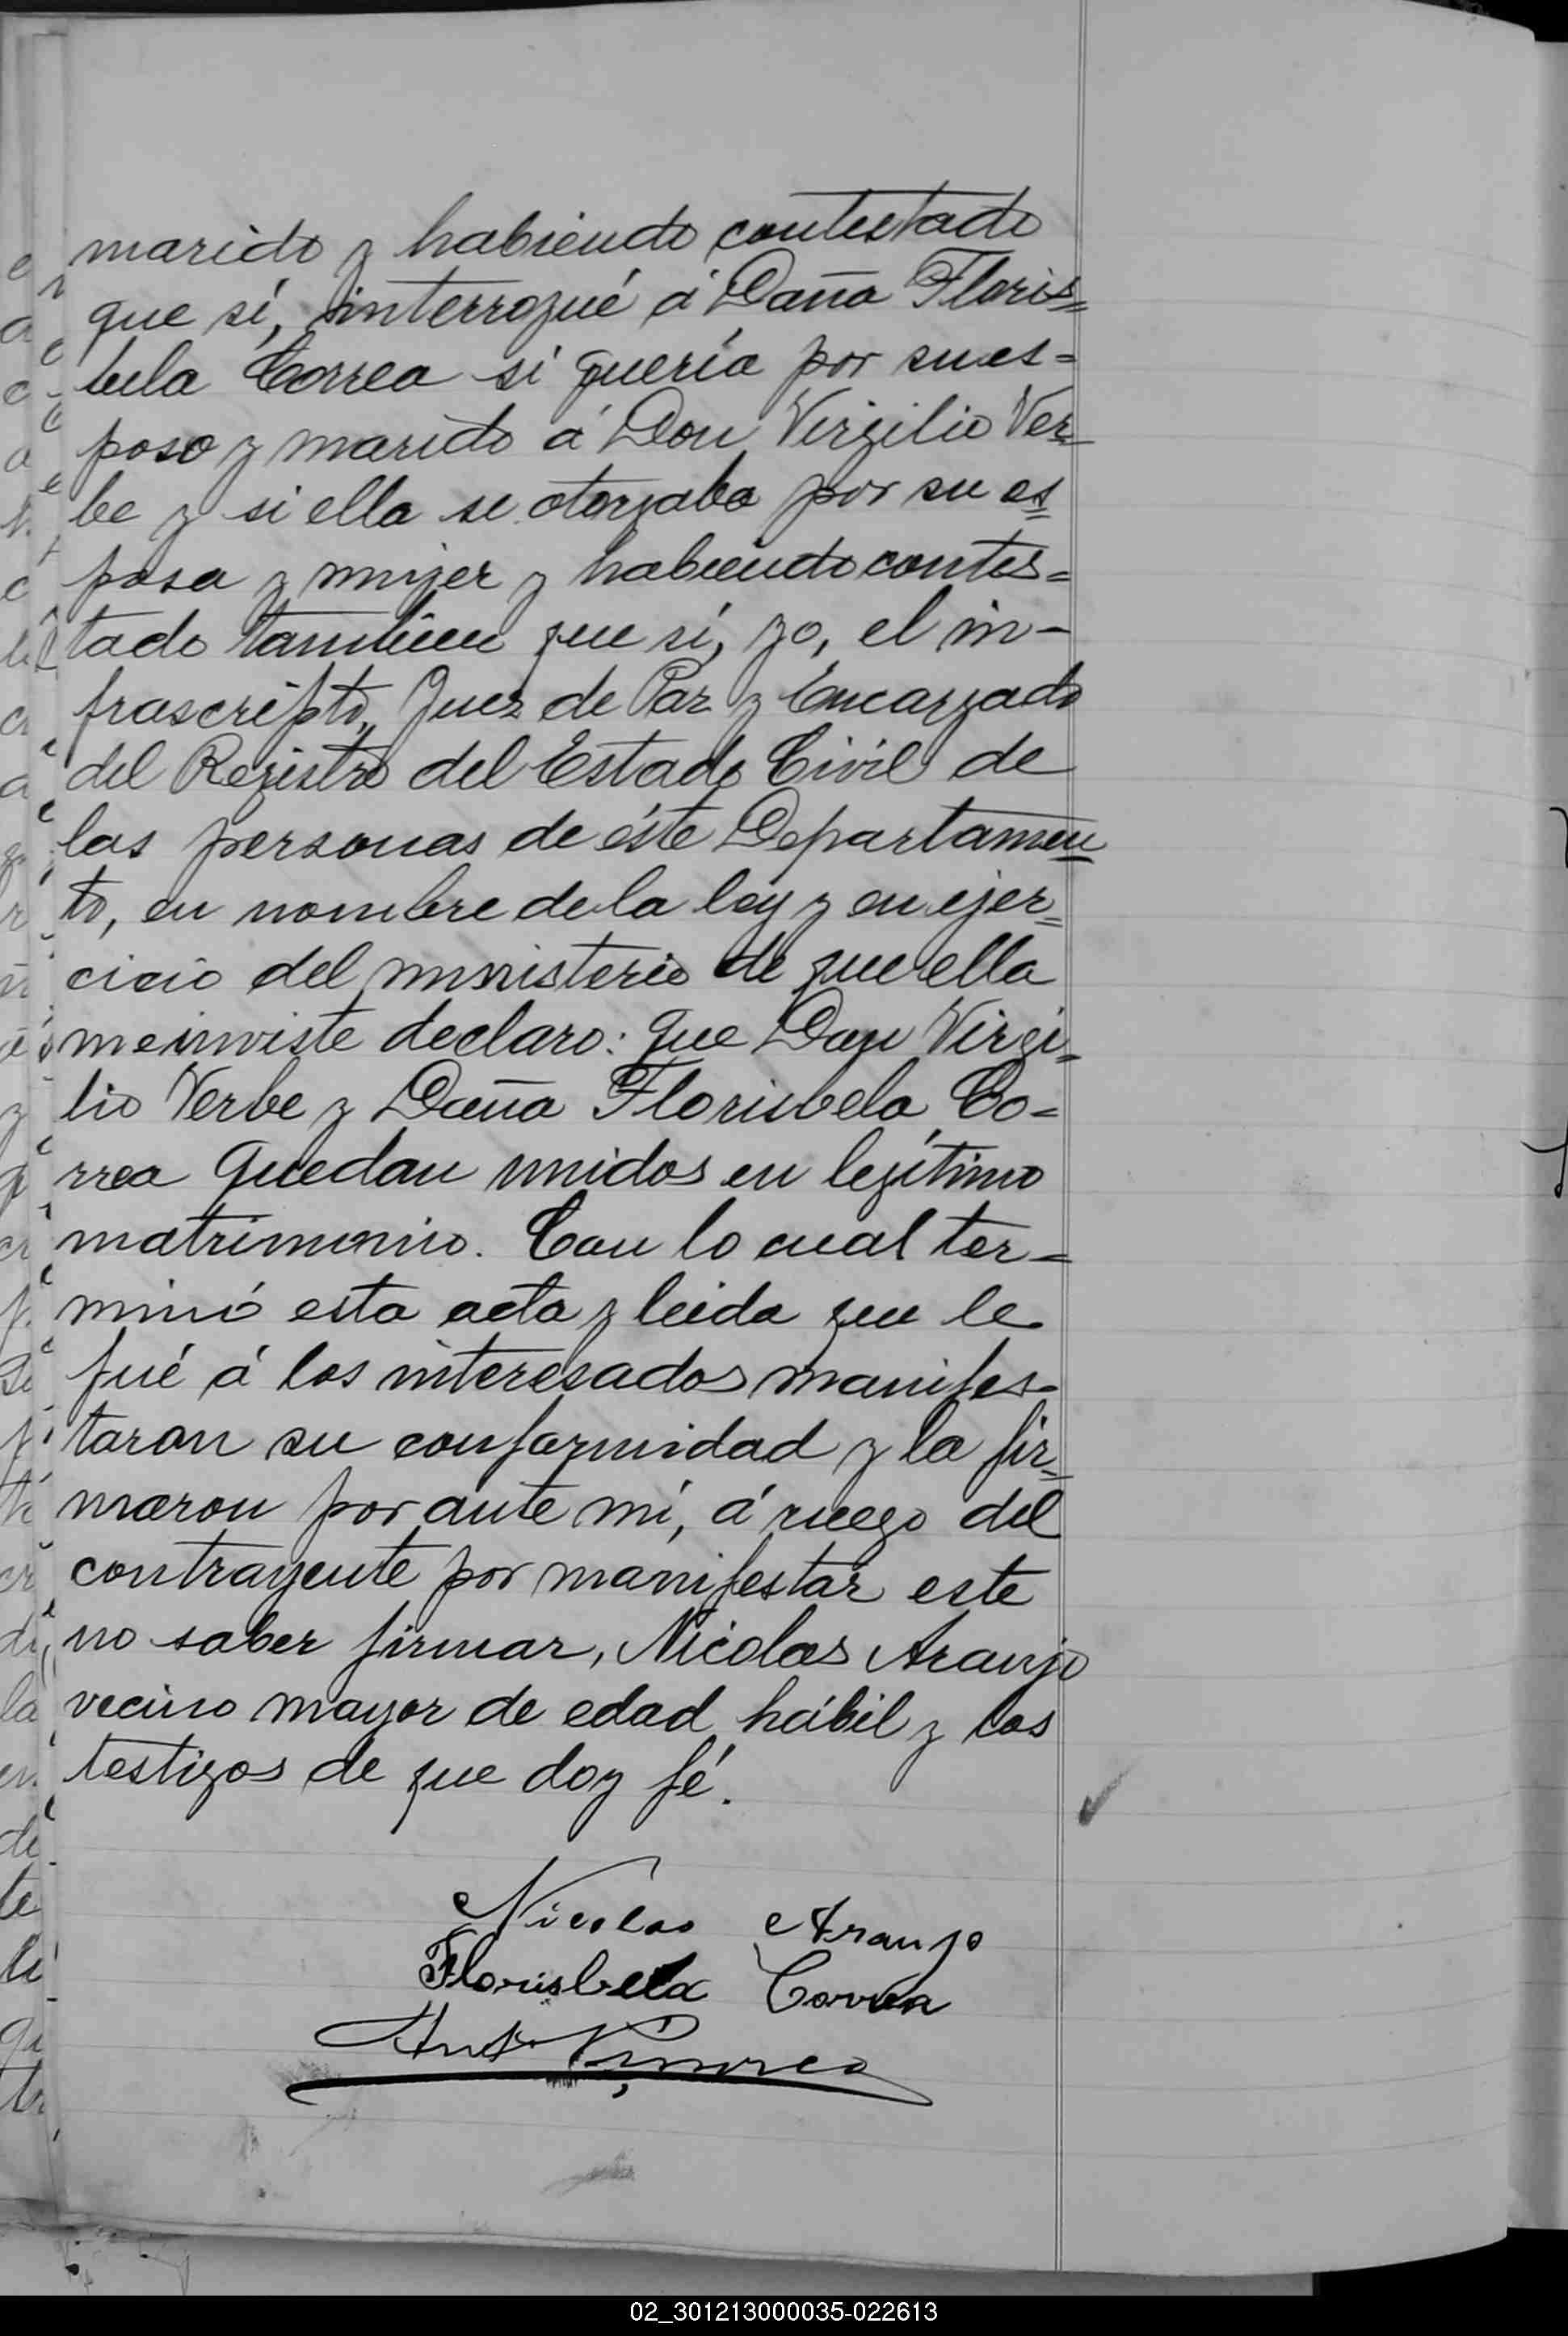 marido y habiendo contestado
que sí, interrogué á Doña Floris=
bela Correa si quería por su es=
poso y marido á Don Virgilio Ver=
be y si ella se otorgaba por su es=
posa y mujer y habiendo contes=
tado tambien que sí, yo, el in-
frascripto, Juez de Paz y Encargado
del Registro del Estado Civil de
las personas de éste Departamen=
to, en nombre de la ley y en ejer=
cicio del ministerio de que ella
me inviste declaro: que Don Virgi=
lio Verbe y Doña Florisbela Co=
rrea quedan unidos en legítimo
matrimonio. Con lo cual ter=
minó esta acta y leida que le
fué á los interesados manifes-
taron su conformidad y la fir=
maron por ante mí, á ruego del
contrayente por manifestar este
no saber firmar, Nicolas Araujo
vecino mayor de edad hábil y los
testigos de que doy fé.
Nicolas Araujo
Florisbela Correa
02_301213000035-022613